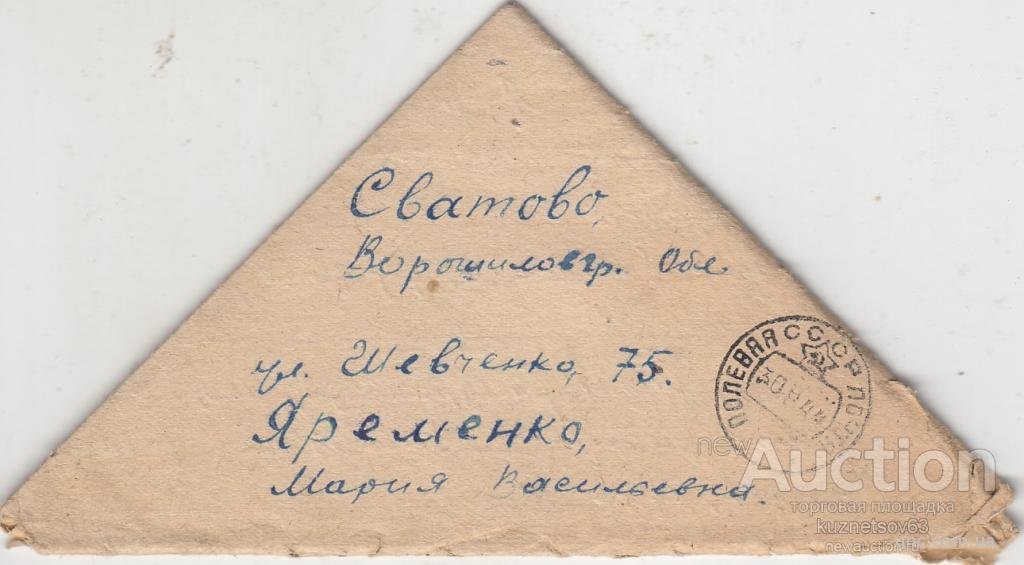 Сватово,
Ворошиловгр. Обл.
ул. Шевченко, 75.
Яременко,
Мария Васильевна.
ПОЛЕВАЯ СССР
30 44
newAuction
торговая площадка
kuznetsov63
newauction.ru